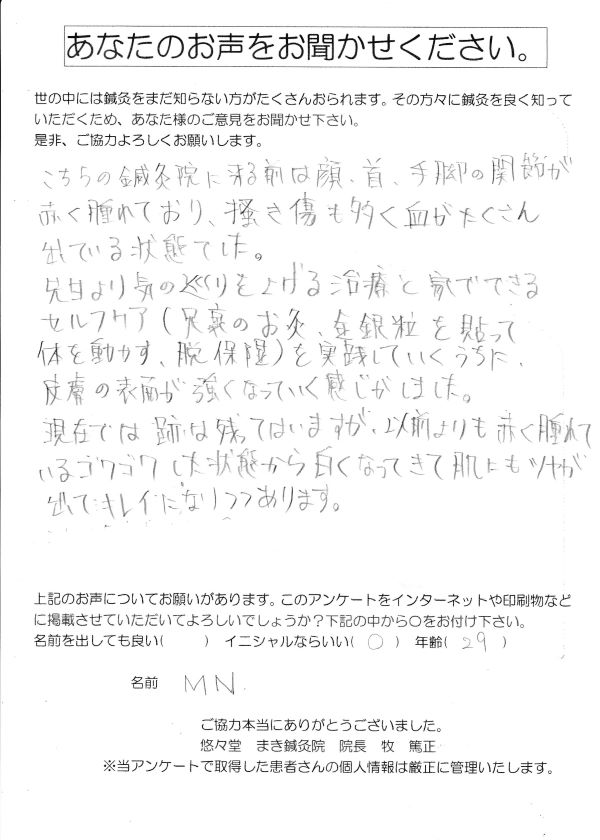 あなたのお声をお聞かせください。
世の中には鍼灸をまだ知らない方がたくさんおられます。その方々に鍼灸を良く知って
いただくため、あなた様のご意見をお聞かせ下さい。
是非、ご協力よろしくお願いします。
こちらの鍼灸院に来る前は顔、首、手脚の関節が
赤く腫れており、掻き傷も多く血がたくさん
出ている状態でした。
先生より気の巡りを上げる治療と家でできる
セルフケア(足裏のお灸、金銀粒を貼って
体を動かす、脱保湿)を実践していくうちに、
皮膚の表面が強くなっていく感じがしました。
現在では跡は残ってはいますが、以前よりも赤く腫れて
いるゴワゴワした状態から白くなってきて肌にもツヤが
出てキレイになりつつあります。
上記のお声についてお願いがあります。このアンケートをインターネットや印刷物など
に掲載させていただいてよろしいでしょうか?下記の中から○をお付け下さい。
名前を出しても良い( ) イニシャルならいい( ○ ) 年齢( 29 )
名前 MN.
ご協力本当にありがとうございました。
悠々堂 まき鍼灸院 院長 牧 篤正
※当アンケートで取得した患者さんの個人情報は厳正に管理いたします。